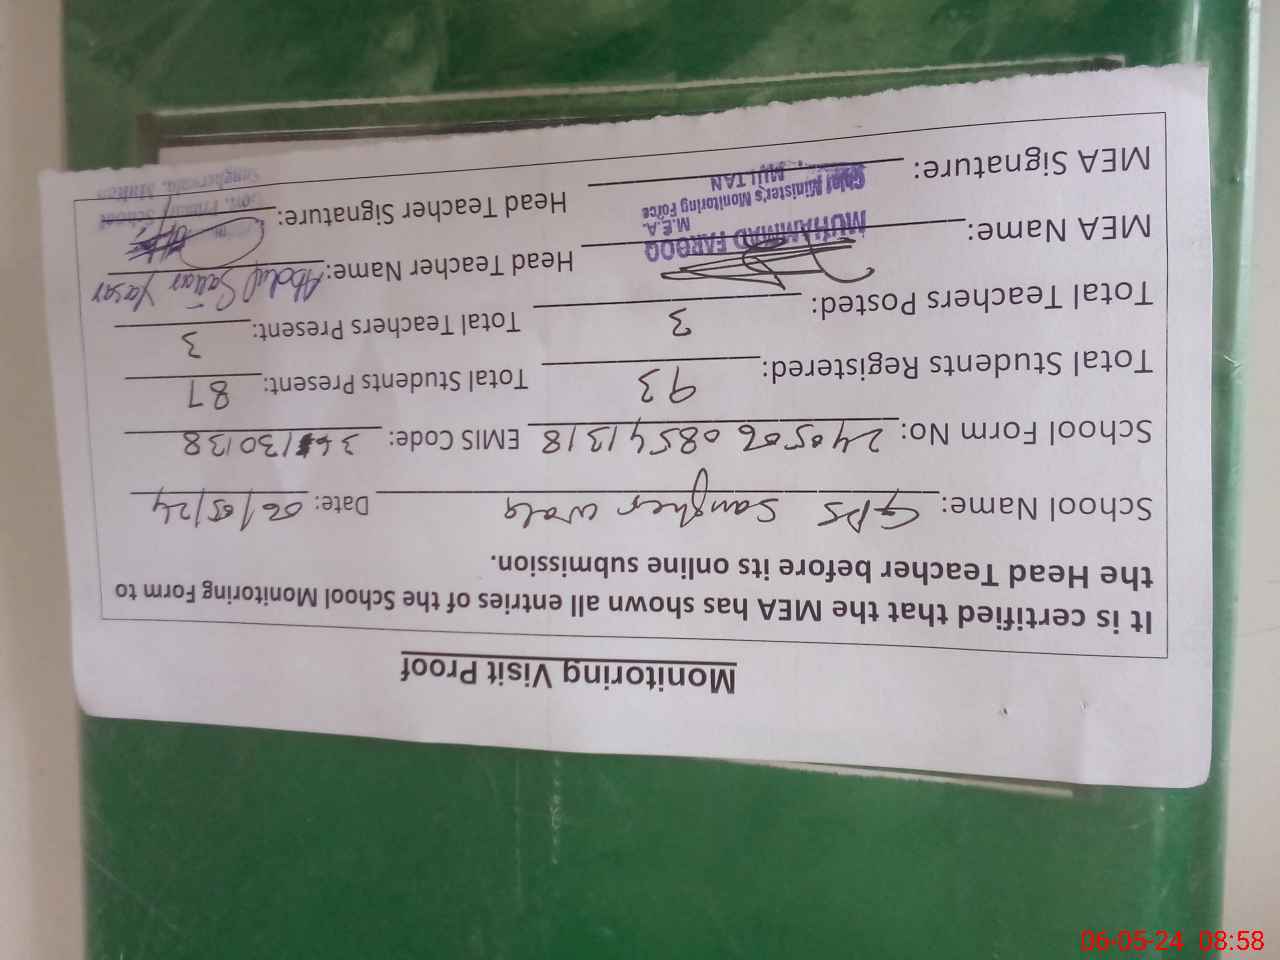 Monitoring Visit Proof
It is certified that the MEA has shown all entries of the School Monitoring Form to
the Head Teacher before its online submission.
School Name: GPS Sangher wala Date: 06/05/24
School Form No: 24050608541318 EMIS Code: 36130138
Total Students Registered: 93 Total Students Present: 87
Total Teachers Posted: 3 Total Teachers Present: 3
MEA Name: MUHAMMAD FAROOQ Head Teacher Name: Abdul Sattar Yasar
M.E.A.
Chief Minister's Monitoring Force
MEA Signature: MULTAN Head Teacher Signature:
Govt. Primary School
Multan
06-05-24 08:58